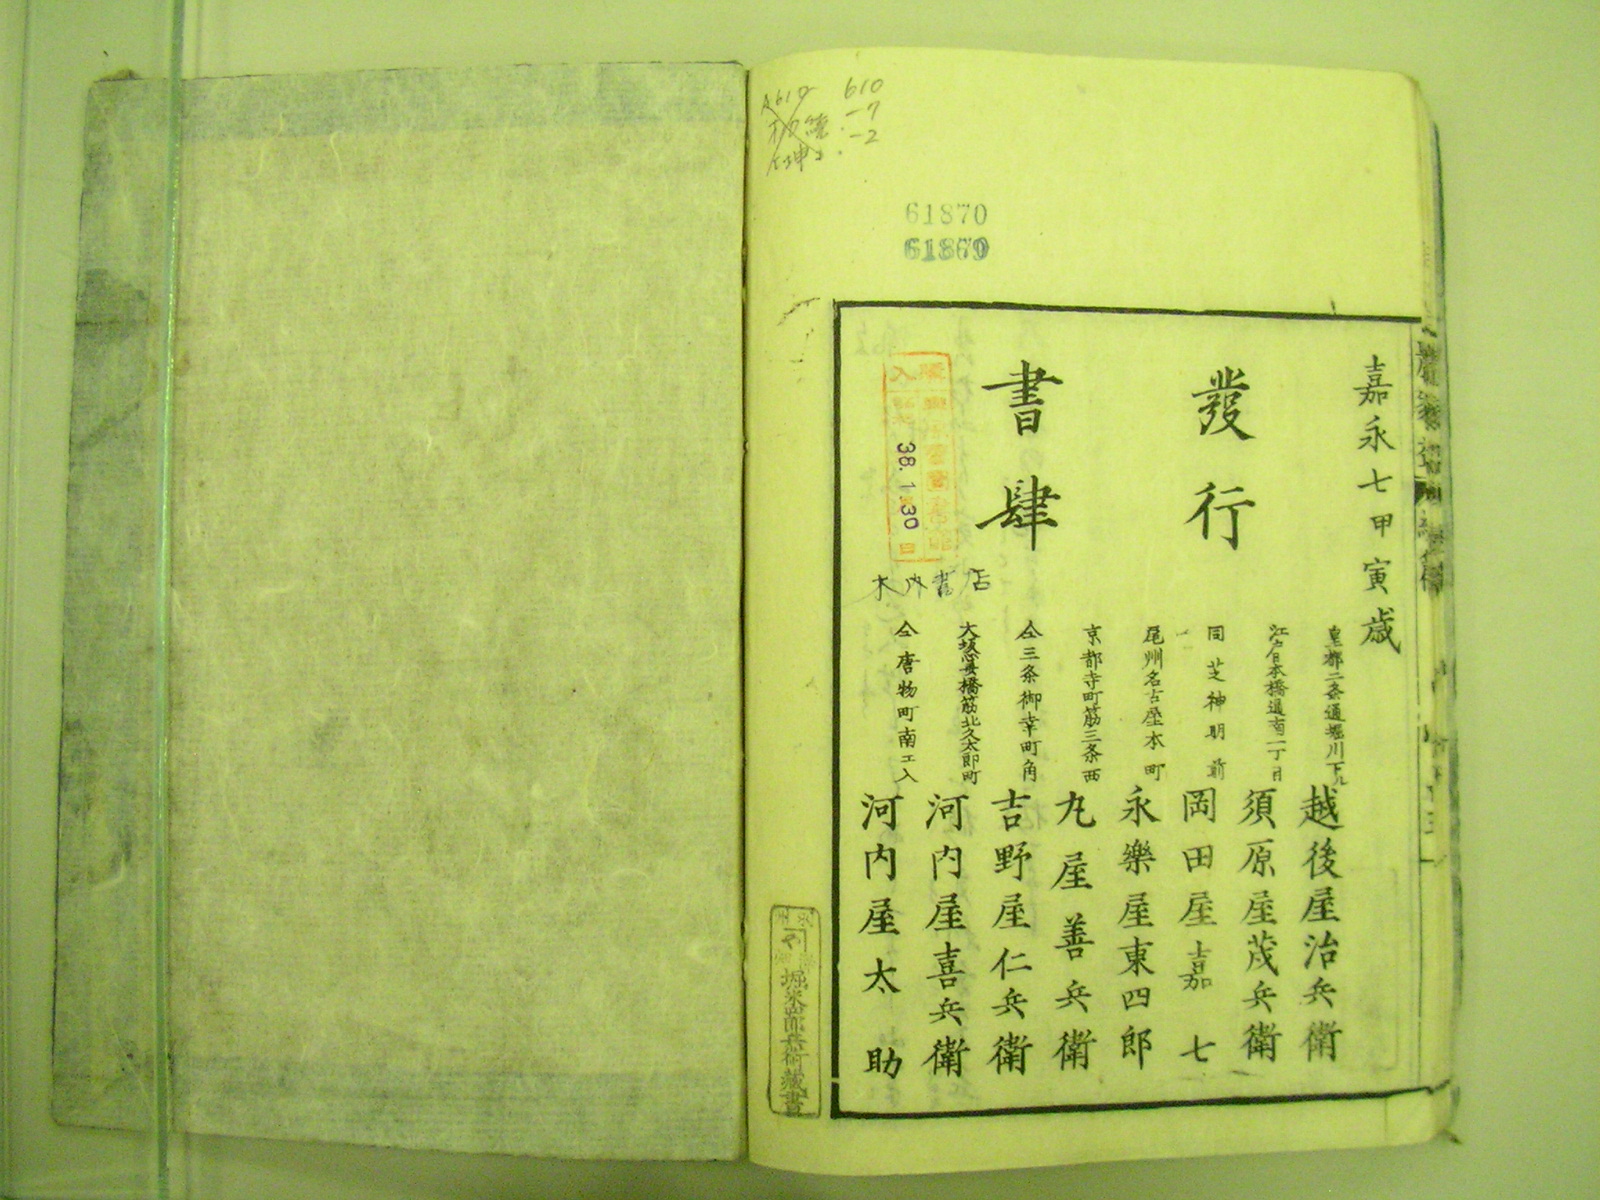 610
-7
-2
61870
61869
嘉永七甲寅歳
發行
書肆
皇都二条通堀川下ル 越後屋治兵衛
江戸日本橋通南一丁目 須原屋茂兵衛
同芝神明前 岡田屋嘉七
尾州名古屋本町 永樂屋東四郎
京都寺町筋三条西 丸屋善兵衛
仝三条御幸町角 吉野屋仁兵衛
大坂心斎橋筋北久太郎町 河内屋喜兵衛
仝唐物町南エ入 河内屋太助
38.1.30
日
木内書店